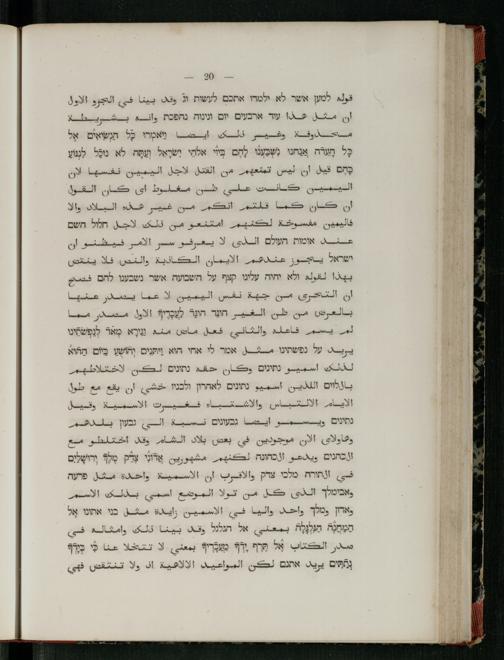 — 20 —
قوله למען אשר לא ילמדו אתכם לעשות וג׳ وقد بينا في الجزو الاول
ان مثل هذا עוד ארבעים יום ונינוה נהפכת وانه بشريطة
محذوفة وغير ذلك ايضا וַיֹאמרוּ כָל הַנְשִׂיאִים אֶל
כָל הָעֵדָה אֲנַחנוּ נִשְבַענוּ לָהֶם בַיי׳ אלֹהֵי יִשרָאֵל וְעַתָה לא נוּכַל לִנגֹעַ
בָהֶם قيل ان ليس تمنعهم من القتل لاجل اليمين نفسها لان
اليمين كانت علي ظن مغلوط اي كان القول
ان كان كما قلتم انكم من غير هذه البلاد والا
فاليمين مفسوخة لكنهم امتنعو من ذلك لاجل חלול השם
عند אומות העולם الذي لا يعرفو سر الامر فيظنو ان
ישראל يجوز عندهم الايمان الكاذبة والنص فلا ينتقض
بهذا لقوله ולא יהיה עלינו קצף על השבועה אשר נשבענו להם فصح
ان التحري من جهة نفس اليمين لا عما يصدر عنها
بالعرض من ظن الغير הוגד הוגַד לַעֲבָדֶיךָ الاول مصدر مما
لم يسم فاعله والثاني فعل ماض منه וַנִירָא מְאֹד לְנַפשֹתֵינוּ
يريد על נפשותינו مثل אמרי לי אחי הוא וַיִתְנֵם יְהוֹשֻעַ בַיוֹם הַהוּא
لذلك اسميو נתינים وكان حقه נתונים لكن لاختلاطهم
بالלוים اللذين اسميو נתונים לאהרון ולבניו خشي ان يقع مع طول
الايام الالتباس والاشتباه فغيرت الاسمية وقيل
נתינים ويسمو ايضا גבעונים نسبة الي גבעון بلدهم
وهاولاي الان موجودين في بعض بلاد الشام وقد اختلطو مع
الכהנים ويدعو الכהונה لكنهم مشهورين אֲדוֹנִי צֶדֶק מֶלֶךְ יְרוּשָלַיִם
في الתורה מלכי צדק والاقرب ان الاسمية واحدة مثل פרעה
ואבימלך الذي كل من تولا الموضع اسمي بذلك الاسم
وאדון وמלך واحد واليا في الاسمين زايدة مثل בני אתונו אֶל
הַמַחֲנֶה הַגִלְגָלָה بمعني אל הגלגל وقد بينا ذلك وامثاله في
صدر الكتاب אַל תֶרֶף יָדֶךָ מֵעֲבָדֶיךָ بمعني لا تتخلا عنا כִי בְיָדְךָ
נְתַתִּים يريد אתנם لكن المواعيد الالاهية اذ ولا تنتقض فهي